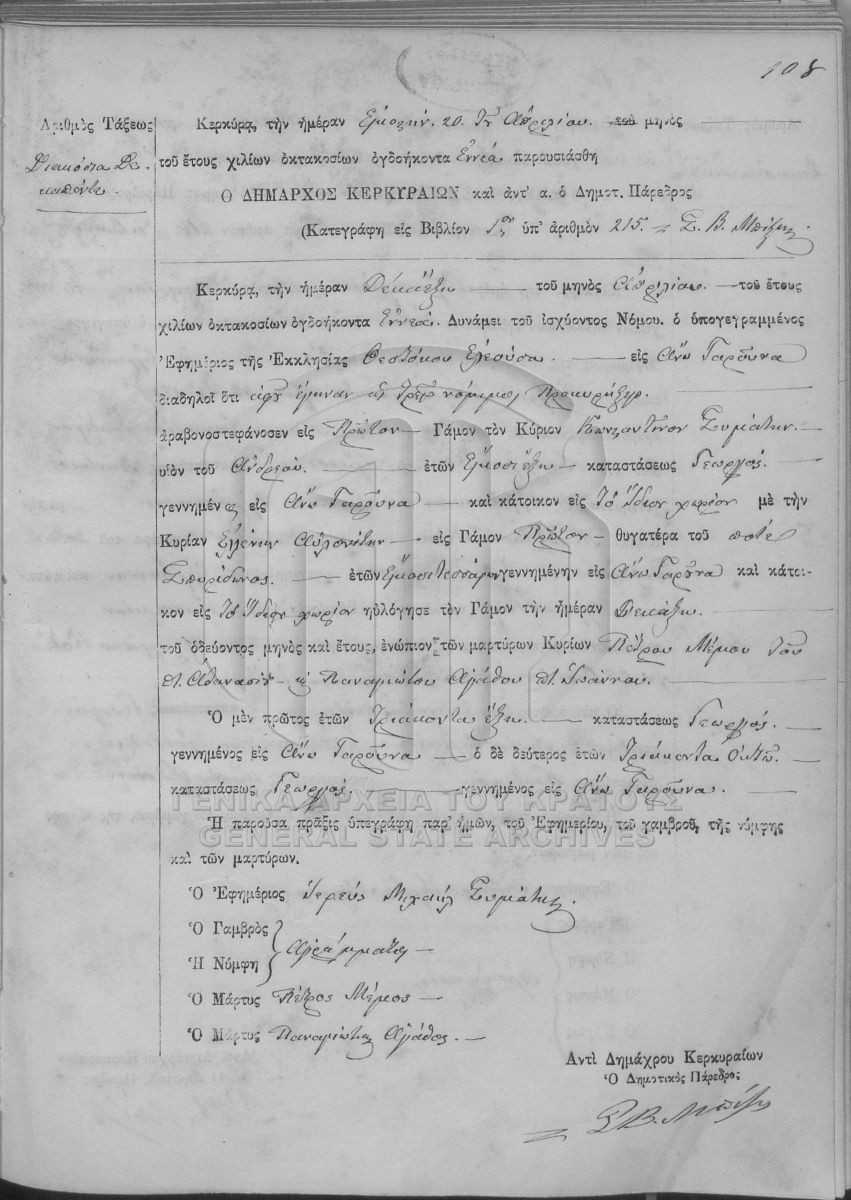 108
Ἀριθμὸς Τάξεως
Διακόσια Δε
καπέντε.
Κερκύρᾳ, τὴν ἡμέραν Εἰκοστήν. 20. τοῦ Ἀπριλίου. τοῦ μηνὸς
τοῦ ἔτους χιλίων ὀκτακοσίων ὀγδοήκοντα Ἐννέα παρουσιάσθη
Ὁ ΔΗΜΑΡΧΟΣ ΚΕΡΚΥΡΑΙΩΝ καὶ ἀντ' α. ὁ Δημοτ. Πάρεδρος
(Κατεγράφη εἰς Βιβλίον 1ον ὑπ' ἀριθμὸν 215. = Σ. Β. Μπίζης
Κερκύρᾳ, τὴν ἡμέραν Δεκάεξη — τοῦ μηνὸς Ἀπριλίου — τοῦ ἔτους
χιλίων ὀκτακοσίων ὀγδοήκοντα Ἐννεά. Δυνάμει τοῦ ἰσχύοντος Νόμου. ὁ ὑπογεγραμμένος
Ἐφημέριος τῆς Ἐκκλησίας Θεοτόκου Ελεούσα. — εἰς Ἄνω Γαροῦνα
διαδηλοῖ ὅτι ἀφοῦ ἔγιναν αἱ τρεῖς νόμιμαι Προκυρήξεις.
ἀραβονοστεφάνοσεν εἰς Πρῶτον — Γάμον τὸν Κύριον Κωνσταντῖνον Συριώτην. —
υἱὸν τοῦ Ἀνδρέου. — ἐτῶν Εἴκοσι ἕξη — καταστάσεως Γεωργός.
γεννημένος εἰς Ἄνω Γαροῦνα — καὶ κάτοικον εἰς Τὸ Ἴδιον χωρίον μὲ τὴν
Κυρίαν Ἑλένην Αὐλονίτην — εἰς Γάμον Πρῶτον — θυγατέρα τοῦ ποτὲ
Σπυρίδωνος. — ἐτῶν Εἴκοσιτεσσάρων γεννημένην εἰς Ἄνω Γαροῦνα καὶ κάτοι-
κον εἰς Τὸ Ἴδιον χωρίον ηὐλόγησε τὸν Γάμον τὴν ἡμέραν Δεκάεξη. —
τοῦ ὁδεύοντος μηνὸς καὶ ἔτους, ἐνώπιον τῶν μαρτύρων Κυρίων Πέτρου Μέμου τοῦ
πτ. Ἀθανασίου — καὶ Παναγιώτου Ἀγάθου πτ. Ἰωάννου. —
Ὁ μὲν πρῶτος ἐτῶν Τριάκοντα ἕξη. — καταστάσεως Γεωργός. —
γεννημένος εἰς Ἄνω Γαροῦνα — ὁ δὲ δεύτερος ἐτῶν Τριάκοντα Ὀκτώ.
καταστάσεως Γεωργός. — γεννημένος εἰς Ἄνω Γαροῦνα. —
ΓΕΝΙΚΑ ΑΡΧΕΙΑ ΤΟΥ ΚΡΑΤΟΥΣ
Ἡ παροῦσα πρᾶξις ὑπεγράφη παρ' ἡμῶν, τοῦ Ἐφημερίου, τοῦ γαμβροῦ, τῆς νύμφης
GENERAL STATE ARCHIVES
καὶ τῶν μαρτύρων.
Ὁ Ἐφημέριος Ἱερεὺς Μιχαὴλ Συριώτης.
Ὁ Γαμβρὸς
Ἀγράμματοι —
Ἡ Νύμφη
Ὁ Μάρτυς Πέτρος Μέμος —
Ὁ Μάρτυς Παναγιώτης Ἀγάθος. —
Ἀντὶ Δημάχρου Κερκυραίων
Ὁ Δημοτικὸς Πάρεδρος
Σ. Β. Μπίζης